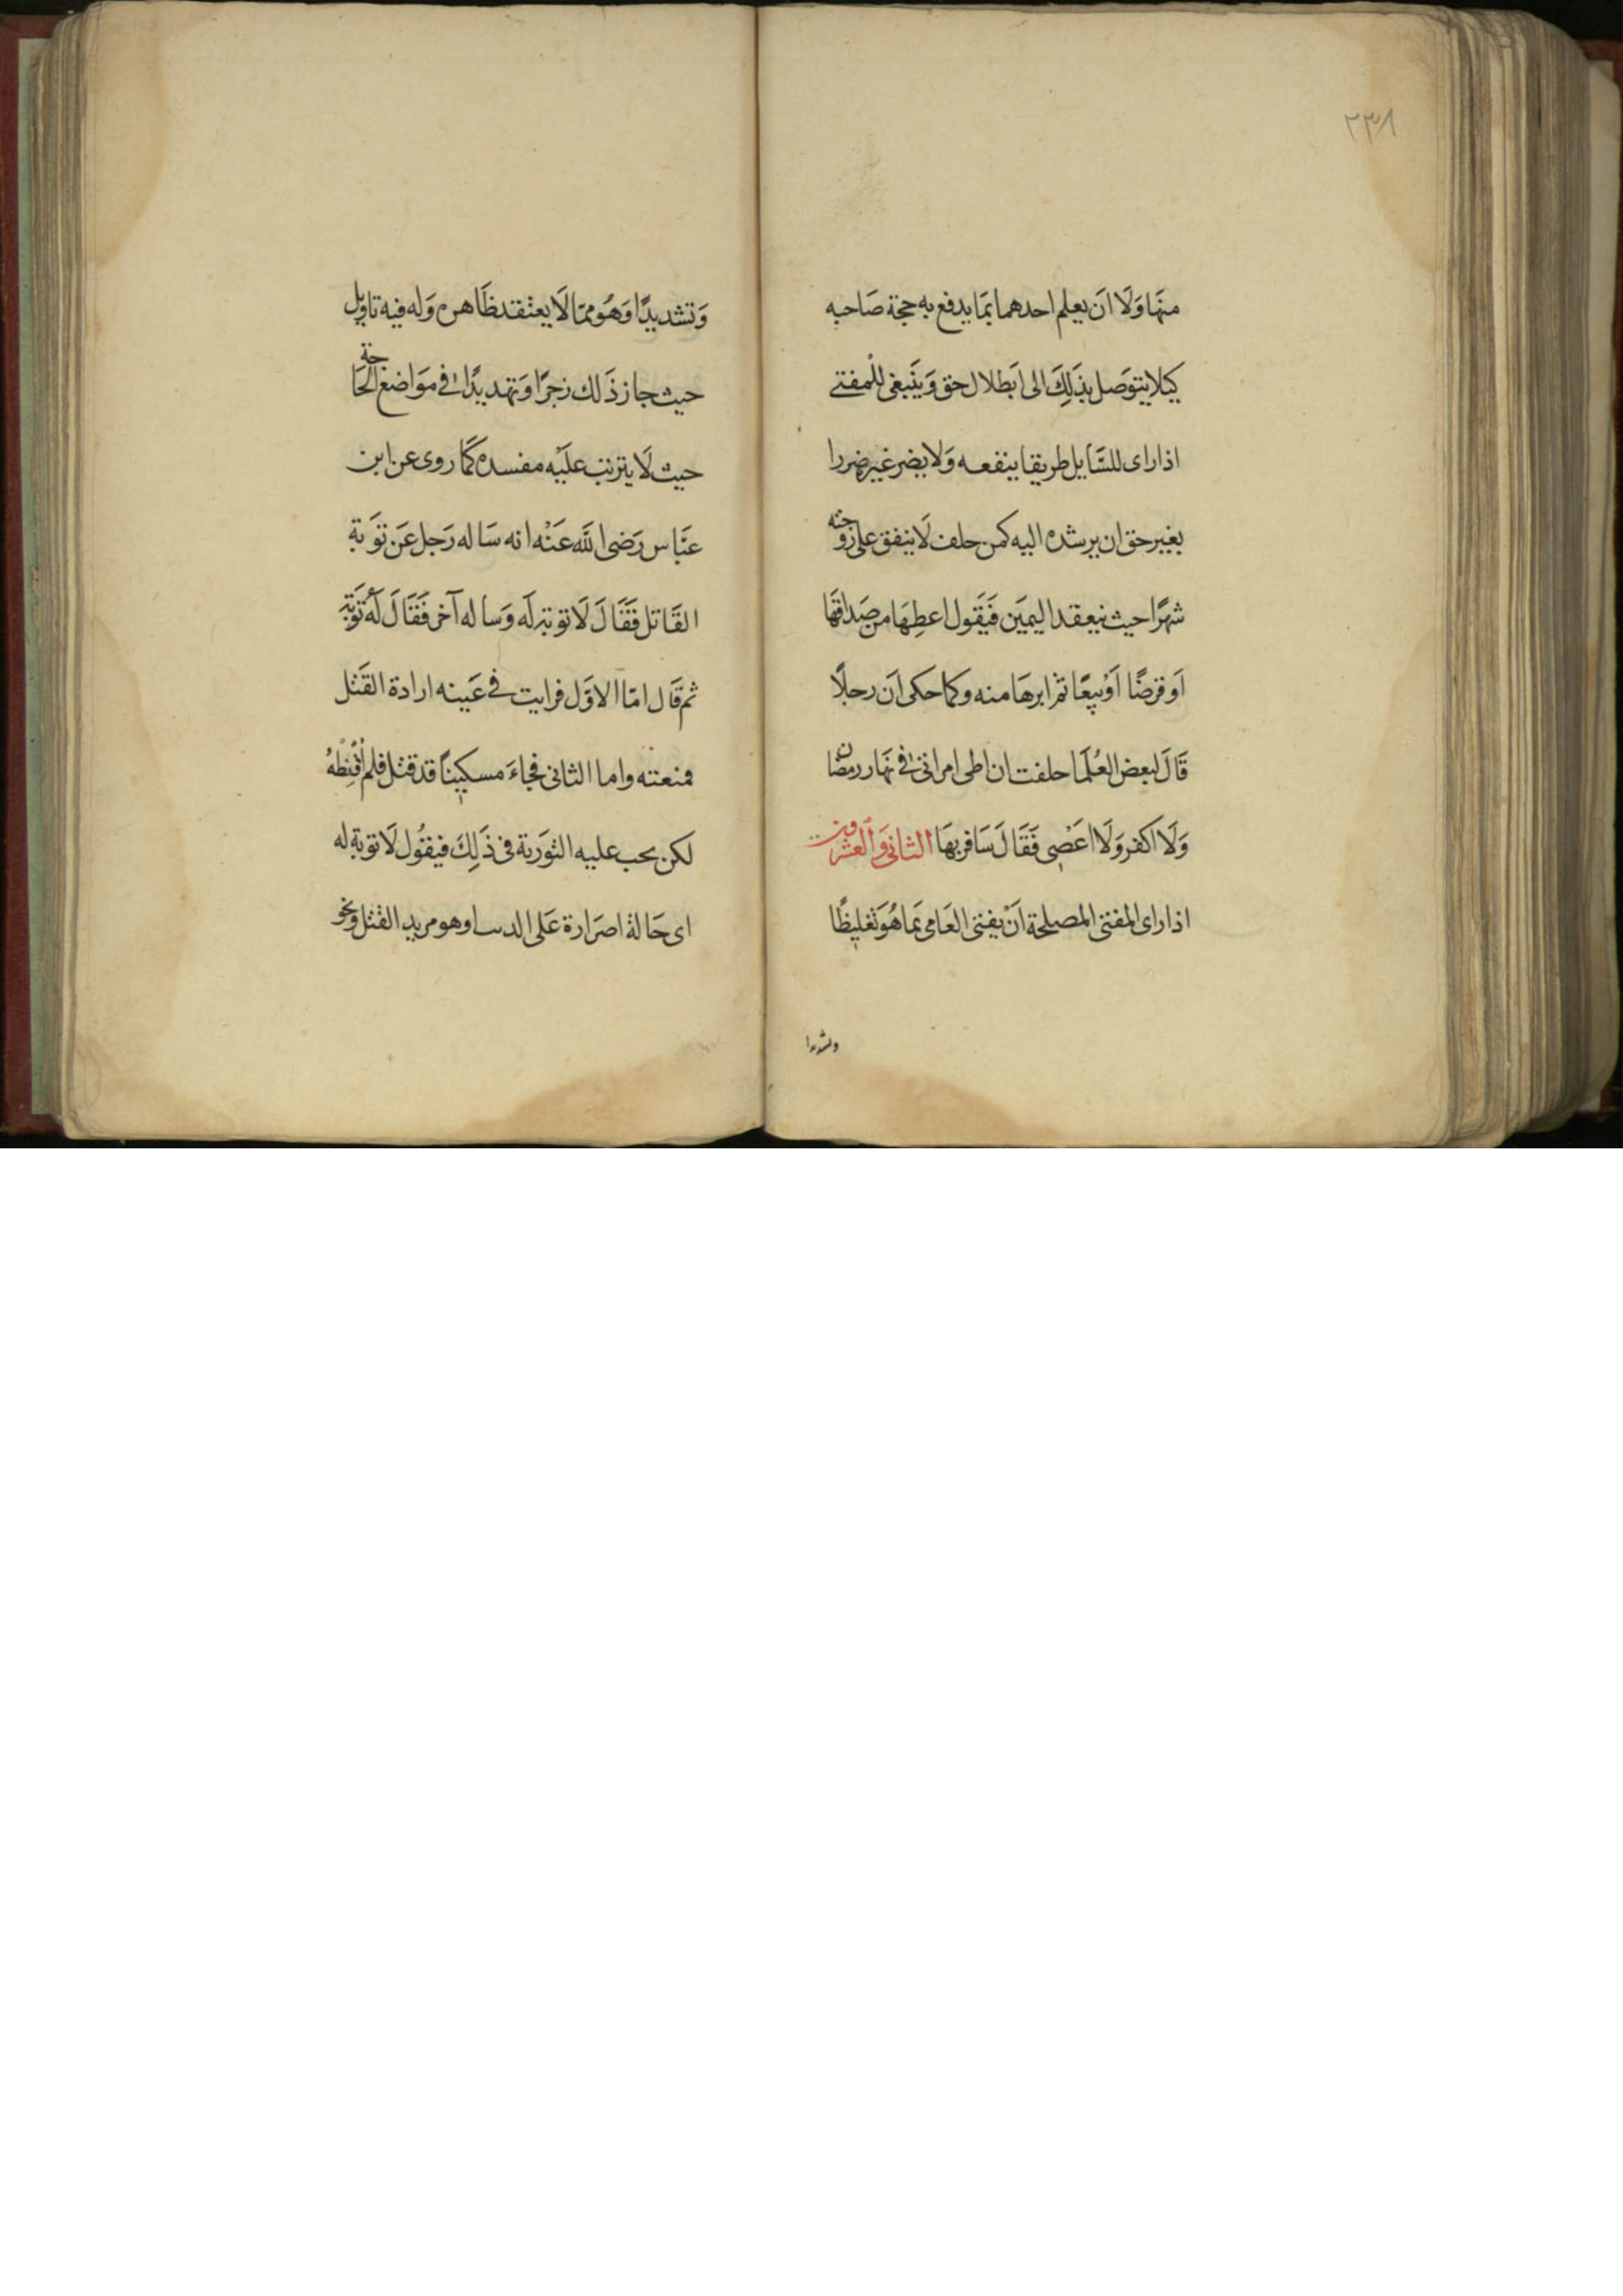 ٢٣٨
منهَا وَلَا اَن يعلم احدهما بمَا يدفع به حجة صَاحبه
كيلا يتوَصل بذَلِكَ الى اَبطلال حق وَيَنبغى للمفتے
اذا راى للسَّايل طريقا ينفعه وَلا يضر غيره ضررا
بغير حق ان يرشده اليه كمن حلف لَا ينفق على زوجته
شهرًا حيث ينعقد اليمَين فَيَقول اعطِهَا من صَداقهَا
اَو قرضًا اَوْ بيعًا ثم ابرهَا منه وكما حكى اَن رجلاً
قَالَ لبعض العُلَمَا حلفت ان اطى امراتى فى نهَار رمضان
وَلَا اكفر وَلَا اعَصِى فَقَالَ سَافر بهَا الثانى وَالعشرون
اذا راى المفتى المصلحة اَنْ يفتى العَامى بمَا هُوَ تغليظًا
وتشديدا
وَتشديدًا وَهُو ممّا لَا يعتقد ظَاهره وَله فيه تاويل
حيث جاز ذَلك زجرًا وَتهديدًا فى مَوَاضع الحَاجة
حيث لَا يترتب علَيْه مفسده كمَا روى عن ابن
عبَّاس رَضى اللَّه عَنْه انه سَاله رَجل عَن توَبة
القَاتل فَقَالَ لَا توبة لَه وَسأله آخر فَقَالَ لَهُ تَوَبَة
ثم قَال امّا الاوَّل فرايت فى عَينه ارادة القَتل
فمنعته واما الثانى فجاءَ مسكينًا قد قتل فلم اُقنِطْهُ
لكن يجب عليه التوَرية فى ذَلِكَ فيقُول لَا توبة له
اى حَالة اصرَارة عَلى الدسا وهو مريد القتل ونحو